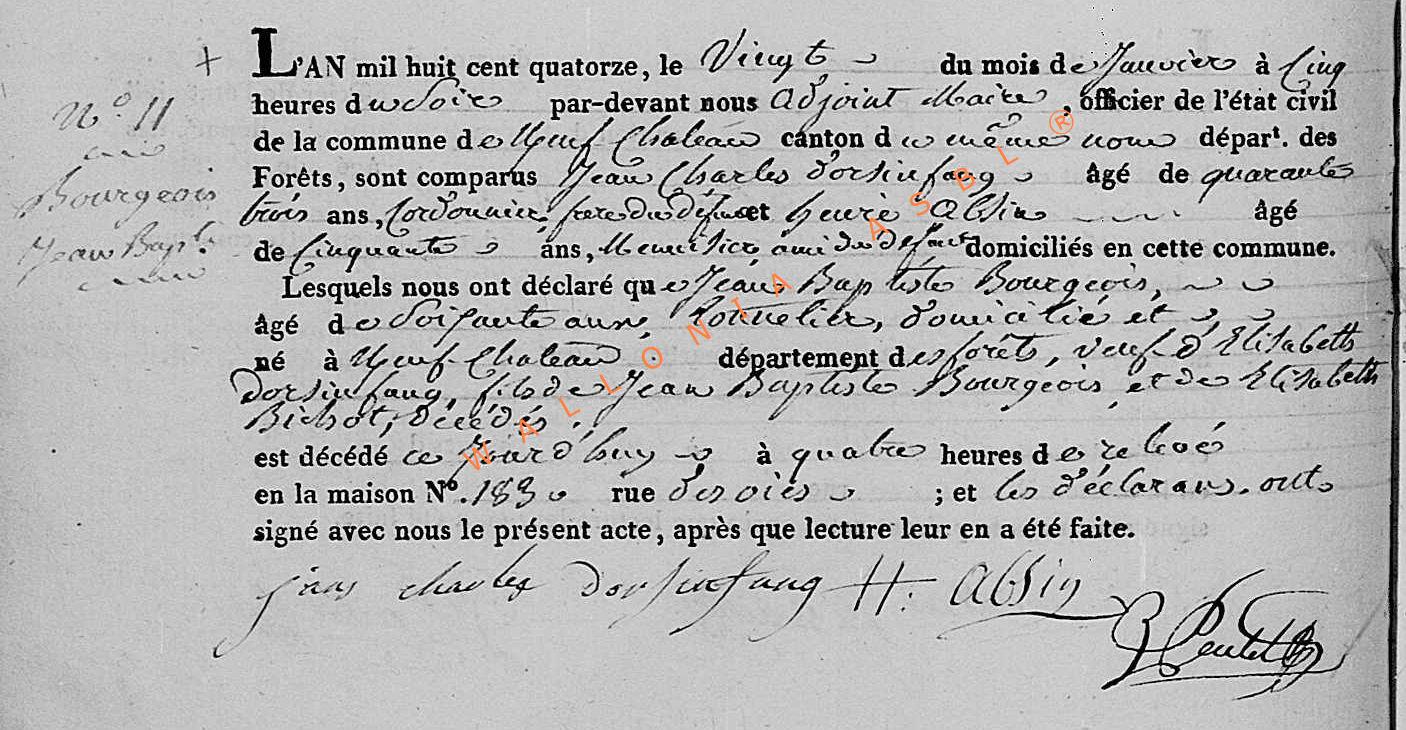 +
N° 11
Bourgeois
Jean Bapt.
L'AN mil huit cent quatorze, le Vingt du mois de Janvier à Cinq
heures du Soir par-devant nous Adjoint Maire, officier de l'état civil
de la commune de Neuf Chateau canton du même nom départ. des
Forêts, sont comparus Jean Charles dorsinfang âgé de quarante
trois ans, Cordonnier, frere du défunt et henri Absin âgé
de Cinquante ans, Menuisier, ami du defunt domiciliés en cette commune.
Lesquels nous ont déclaré que Jean Baptiste Bourgeois,
âgé de Soixante ans, Tonnelier, domicilié et
né à Neuf-Chateau département des forêts, veuf d'Elisabeth
dorsinfang, fils de Jean Baptiste Bourgeois, et de Elisabeth
Bichot, décédés.
est décédé ce Jourd'huy à quatre heures de relevé
en la maison N°. 183 rue des oies ; et les déclarans. ont
signé avec nous le présent acte, après que lecture leur en a été faite.
jean charles Dorsinfang H: Absin
WALLONIA ASBL ®